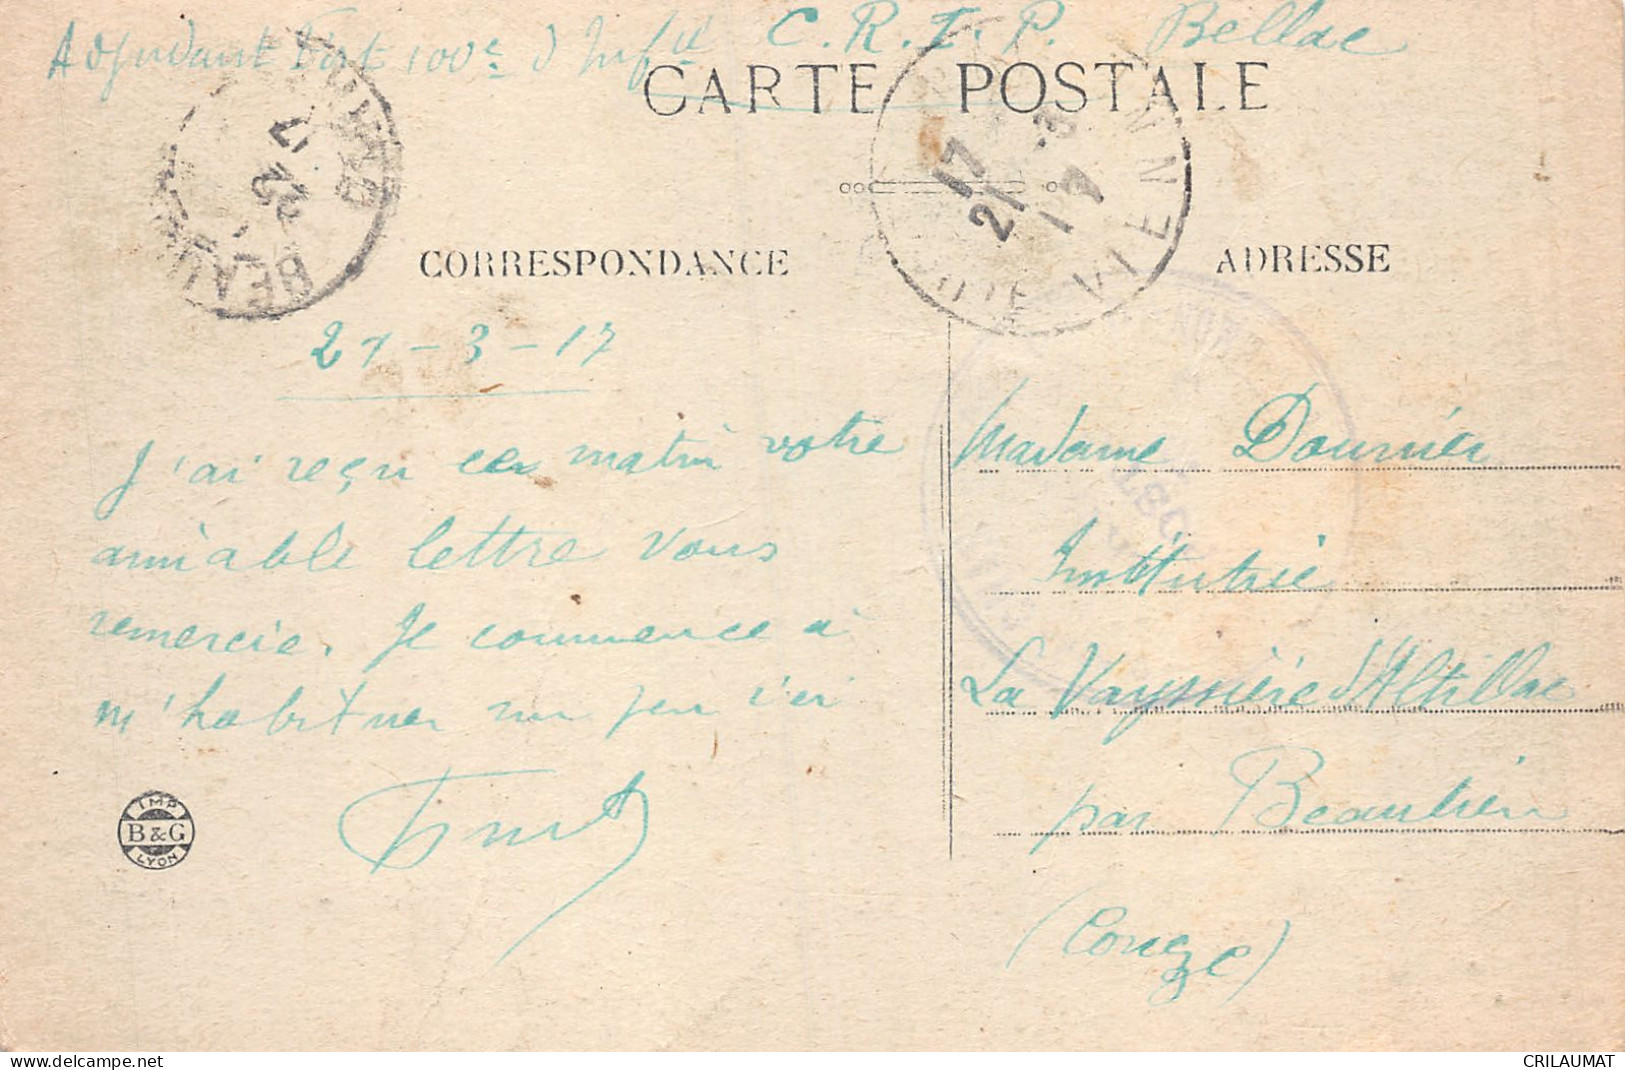 Adjudant 100e d'Infie C.R.I.P. Bellac
CARTE POSTALE
17
21 -3
17
VIENNE
22
17
BEAU
CORRESPONDANCE
ADRESSE
21-3-17
J'ai reçu ce matin votre
amiable lettre Vous
remercie. Je commence à
m'habituer un peu i'ci
Madame Dournier
Institutrice
La Vayssière d'Altillac
par Beaulieu
(Corrèze)
IMP
B&G
LYON
delcampe.net
CRILAUMAT